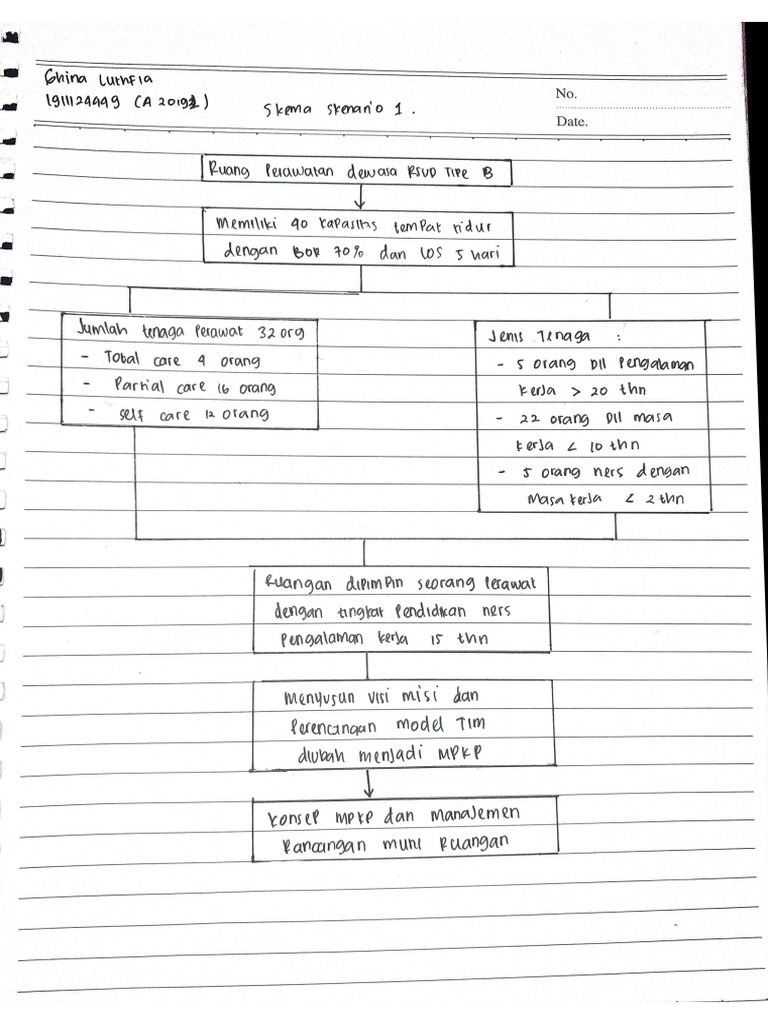 Ghina Luthfia
1911124449 (A 20192)
Skema skenario 1.
No.
Date.
Ruang Perawatan dewasa RSUD TIPE B
Memiliki 40 kapasitas tempat tidur
dengan BOR 70% dan LOS 5 hari
Jumlah tenaga perawat 32 org
- Total care 4 orang
- Partial care 16 orang
- self care 12 orang
Jenis Tenaga :
- 5 orang DIII Pengalaman
kerja > 20 thn
- 22 orang DIII masa
kerja < 10 thn
- 5 orang ners dengan
Masa kerja < 2 thn
Ruangan dipimpin seorang perawat
dengan tingkat pendidikan ners
pengalaman kerja 15 thn
Menyusun visi misi dan
Perencangan model TIM
diubah menjadi MPKP
Konsep MPKP dan Manajemen
Rancangan Ruangan